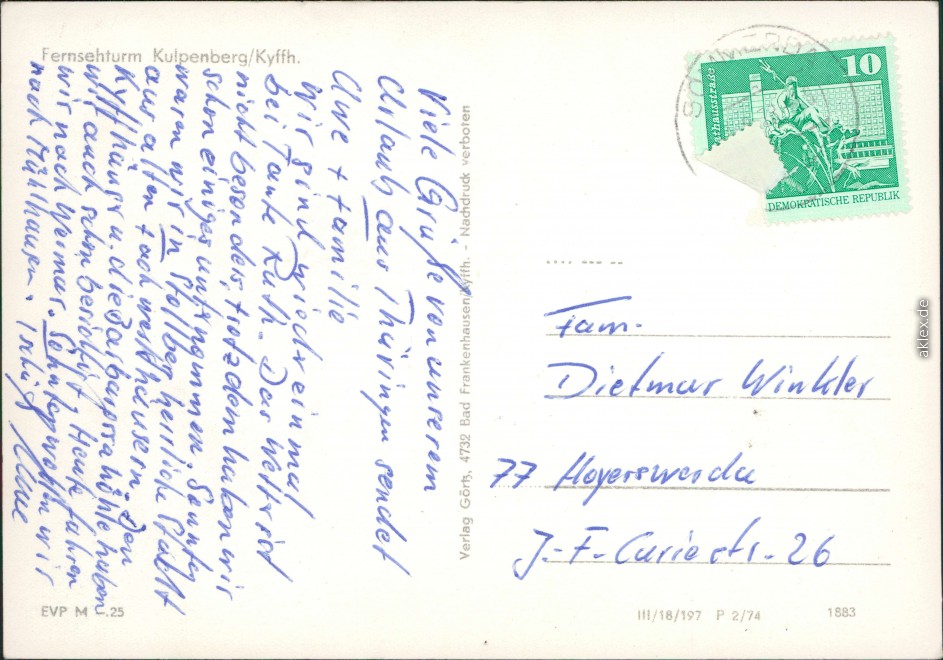 Fernsehturm Kulpenberg/Kyffh.
Viele Grüße von unserem
Urlaub aus Thüringen sendet
Uwe + Familie
Wir sind wieder einmal
bei Tante Ruth. Das Wetter ist
nicht besonders, trotzdem haben wir
schon einiges unternommen. Sonntag
waren wir in Stolberg herrliche Stadt
aus alten Fachwerkhäusern. Den
Kyffhäuser u. die Barbarossahöhle haben
wir auch schon besichtigt. Heute fahren
wir nach Weimar. Sonntag wollen wir
nach Mühlhausen.
Verlag Görtz, 4732 Bad Frankenhausen/Kyffh. - Nachdruck verboten
EVP M -.25
10
athausstraße
DEMOKRATISCHE REPUBLIK
Fam.
Dietmar Winkler
77 Hoyerswerda
J.-F.-Curiestr. 26
III/18/197 P 2/74 1883
aklex.de